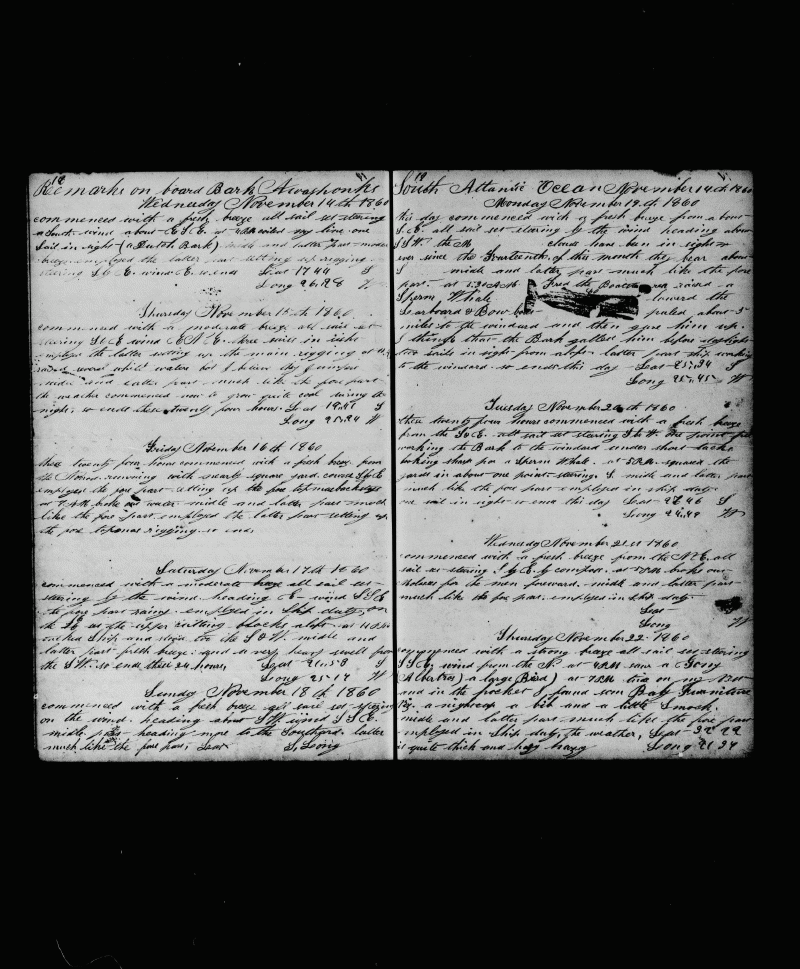 18
Remarks on board Bark Awashonks
Wednesday November 14th 1860
commenced with a fresh breeze all sail set stering
a South wind about E S E. at 4 P.M.
Sail in sight (a Dutch Bark) midd and latter part
breeze employed the latter part setting up rigging.
stering S b E. wind E. so ends Lat 17 44 S
Long 26.28 W
Thursday November 15th 1860
commenced with a moderate breeze all sail set
stering S b E wind E N E. three sails in sight
employed the latter setting up the main rigging at
raised white water but I believe they
midd and latter part much like the fore part
the weather commences now to grow quite cool during the
night. so ends these twenty four hours. Lat 19.41 S
Long 25.24 W
Friday November 16th 1860
these twenty four hours commenced with a fresh breeze from
the running with nearly square yards course S b E
employed the fore part setting up the fore topmast backstays
at 7 A.M. broke out water middle and latter part much
like the fore part employed the latter part setting up
the fore topmast rigging. so ends
Saturday November 17th 1860
commenced with a moderate breeze all sail set
stering by the wind heading E wind S S E
the fore part rainy. employed in Ship duty, on
the upper cutting blocks aloft at
tacked Ship and stood to the S & W. middle and
latter part fresh breeze and a very heavy swell from
the S W. so ends these 24 hours, Lat 21.58 S
Long 25.17 W
Sunday November 18th 1860
commenced with a fresh breeze all sail set stering
on the wind. heading about S W wind S S E.
middle part heading more to the Southard. latter
much like the fore part, Lat S, Long
19
South Atlantic Ocean November 14th 1860
Monday November 19th 1860
this day commenced with a fresh breeze from about
S E. all sail set stering by the wind heading about
S S W. the have been in sight
ever since the fourteenth of this month they bear about
S middle and latter part much like the fore
part. at 5.30 A.M. Fred the Boatsteerer raised a
Sperm Whale toward the
Larboard Bow about 5
miles to the windward and then gave him up.
I think that the Bark gallied him before daylight
two sails in sight from aloft latter part ship working
to the windward so ends this day Lat 25.34 S
Long 25.45 W
Tuesday November 20th 1860
these twenty four hours commenced with a fresh breeze
from the S & E. all sail set stering S & W.
working the Bark to the windward under short tacks
looking sharp for a Sperm Whale. at 5 P.M. squared the
yards in about one point stering S. midd and latter part
much like the fore part employed in ship duty.
one sail in sight so ends this day Lat 27.46 S
Long 24.49 W
Wednesday November 21st 1860
commenced with a fresh breeze from the N E. all
sail set stering S b E by compass. at broke out
for the men forward. middle and latter part
much like the fore part. employed in ship duty.
Lat
Long W
Thursday November 22. 1860
commenced with a strong breeze all sail set stering
S S E, wind from the N. at 4 P.M. saw a Gony
Albatros (a large Bird) at 7 P.M. tried on my vest
and in the pocket I found som Baby Furniture
Viz. a nightcap a bib and a little smock.
middle and latter part much like the fore part
employed in Ship duty, the weather, Lat 32 22
is quite thick and hazy hazy Long 21 34